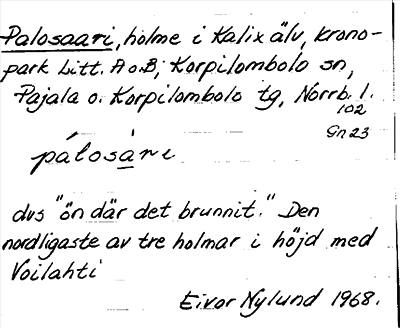 Palosaari, holme i Kalix älv, krono-
park Litt. A o. B, Korpilombolo sn,
Pajala o. Korpilombolo tg, Norrb. l.
102
Gn 23
pálosàri
dvs "ön där det brunnit." Den
nordligaste av tre holmar i höjd med
Voilahti
Eivor Nylund 1968.